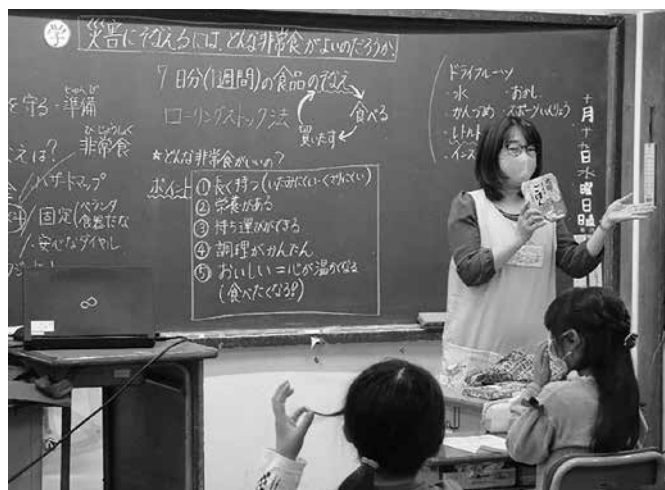 学 災害にそなえるには、どんな非常食がよいのだろうか。
7日分(1週間)の食品のそなえ
ローリングストック法
食べる
買いたす
★どんな非常食がいいの?
ポイント
① 長く持つ(いたみにくい・くさりにくい)
② 栄養がある
③ 持ち運びができる
④ 調理がかんたん
⑤ おいしい=心が温かくなる
(食べたくなる!)
を守る・準備
じゅんび
えは?
ひじょうしょく
非常食
ハザードマップ
固定(ベランダ
食器だな
・安心なダイヤル
ドライフルーツ
・水 ・おかし
・かんづめ ・スポーツいんりょう
・レトルト
・インス
十月十七日水曜日